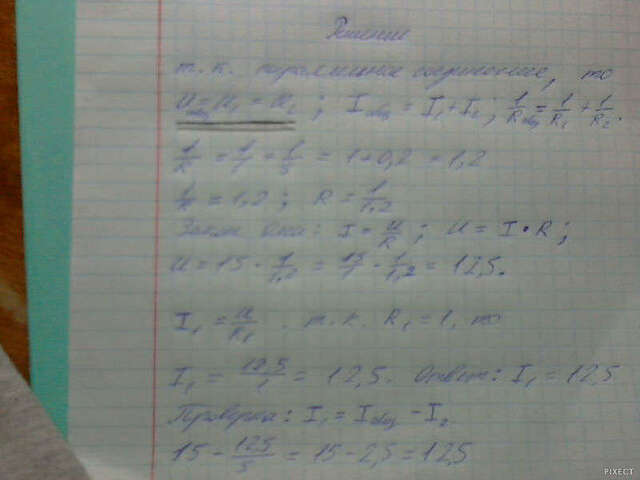 Решение
т.к. параллельное соединение, то
Uобщ = U₁ = U₂ ; Iобщ = I₁ + I₂ ; 1/Rобщ = 1/R₁ + 1/R₂.
1/R = 1/1 + 1/5 = 1 + 0,2 = 1,2
1/R = 1,2 ; R = 1/1,2
Закон Ома: I = U/R ; U = I · R ;
U = 15 · 1/1,2 = 15/1 · 1/1,2 = 12,5.
I₁ = U/R₁ . т.к. R₁ = 1, то
I₁ = 12,5/1 = 12,5. Ответ: I₁ = 12,5
Проверка: I₁ = Iобщ - I₂
15 - 12,5/5 = 15 - 2,5 = 12,5
PIXECT